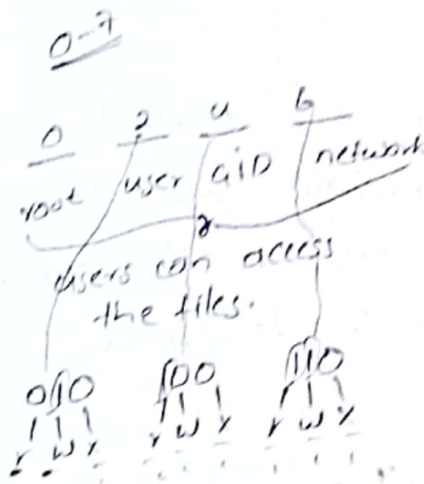 0-7
0 2 4 6
root user GID network
users can access
the files.
010 100 110
r w x r w x r w x